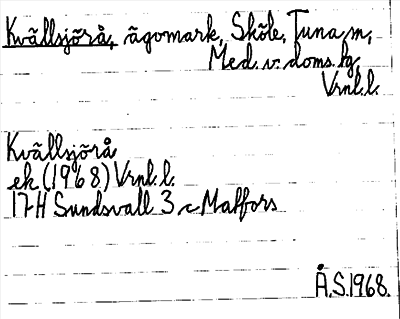 Kvällsjörå, ägomark, Sköle, Tuna sn,
Med. v. doms. bg,
Vrnl. l.
Kvällsjörå
ek (1968) Vrnl. l.
17H Sundsvall 3 c Matfors
Å.S. 1968.